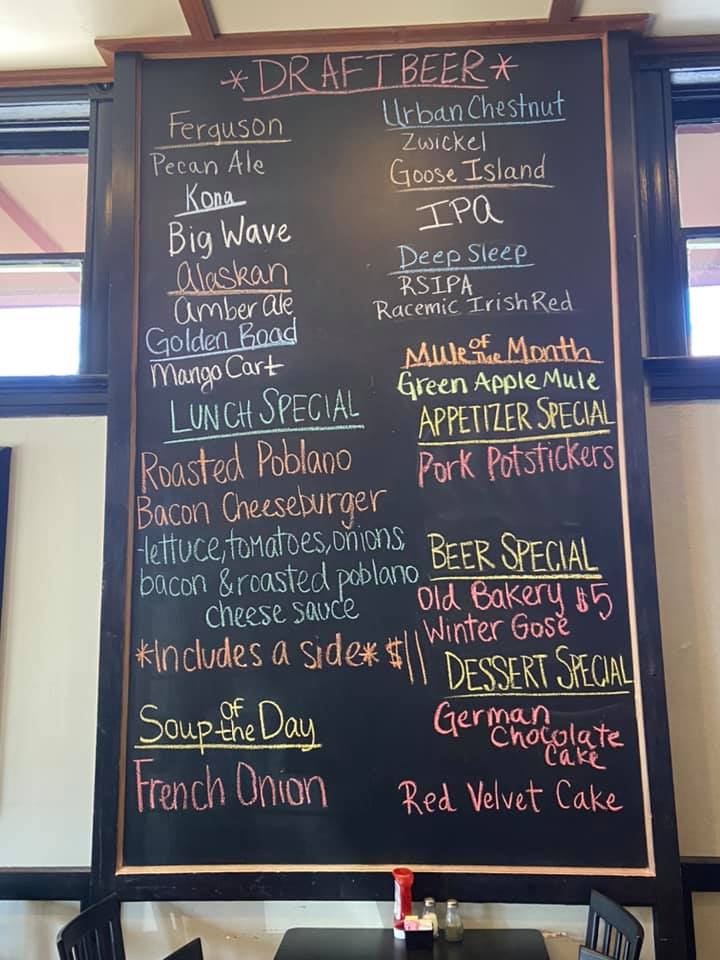 *DRAFT BEER*
Ferguson
Pecan Ale
Kona
Big Wave
Alaskan
Amber Ale
Golden Road
Mango Cart
LUNCH SPECIAL
Roasted Poblano
Bacon Cheeseburger
-lettuce, tomatoes, onions,
bacon & roasted poblano
cheese sauce
*Includes a side* $11
Soup of the Day
French Onion
Urban Chestnut
Zwickel
Goose Island
IPA
Deep Sleep
RSIPA
Racemic Irish Red
Mule of The Month
Green Apple Mule
APPETIZER SPECIAL
Pork Potstickers
BEER SPECIAL
Old Bakery $5
Winter Gose
DESSERT SPECIAL
German
Chocolate
Cake
Red Velvet Cake